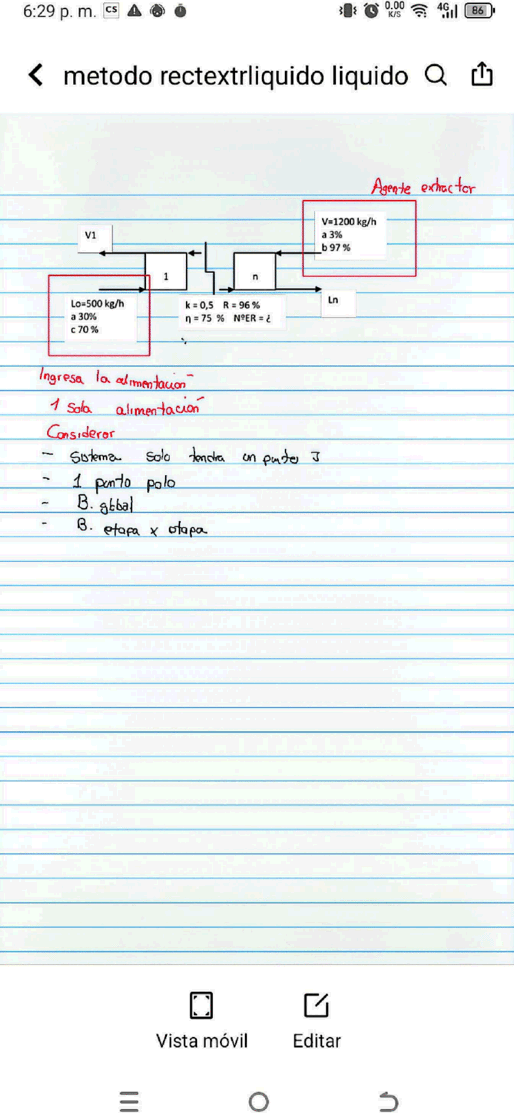 6:29 p. m. CS 0.00 K/S 4G 86
metodo rectextrliquido liquido
Agente extractor
V=1200 kg/h
a 3%
b 97 %
V1
1
n
Lo=500 kg/h
a 30%
c 70 %
k = 0,5 R = 96 %
η = 75 % NºER = ¿
Ln
Ingresa la alimentación
1 Sola alimentación
Considerar
- Sistema solo tendra un punto J
- 1 punto polo
- B. global
- B. etapa x etapa
Vista móvil
Editar